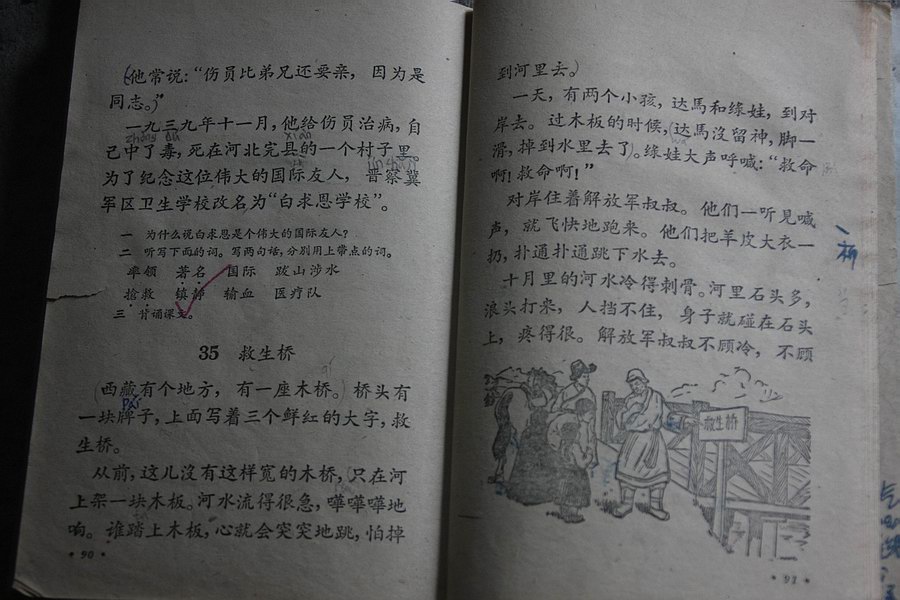 他常说：“伤员比弟兄还要亲，因为是
同志。”
一九三九年十一月，他给伤员治病，自
己中了毒，死在河北完县的一个村子里。
为了纪念这位伟大的国际友人，晋察冀
军区卫生学校改名为“白求恩学校”。
一 为什么说白求恩是个伟大的国际友人？
二 听写下面的词。写两句话，分别用上带点的词。
率领 著名 国际 跋山涉水
抢救 镇静 输血 医疗队
三 背诵课文。
35 救生桥
西藏有个地方，有一座木桥。桥头有
一块牌子，上面写着三个鲜红的大字，救
生桥。
从前，这儿沒有这样宽的木桥，只在河
上架一块木板。河水流得很急，嘩嘩嘩地
响。谁踏上木板，心就会突突地跳，怕掉
• 90 •
到河里去。
一天，有两个小孩，达馬和缘娃，到对
岸去。过木板的时候，达馬沒留神，脚一
滑，掉到水里去了。缘娃大声呼喊：“救命
啊！救命啊！”
对岸住着解放军叔叔。他们一听見喊
声，就飞快地跑来。他们把羊皮大衣一
扔，扑通扑通跳下水去。
十月里的河水冷得刺骨。河里石头多，
浪头打来，人挡不住，身子就碰在石头
上，疼得很。解放军叔叔不顾冷，不顾
救生桥
• 91 •